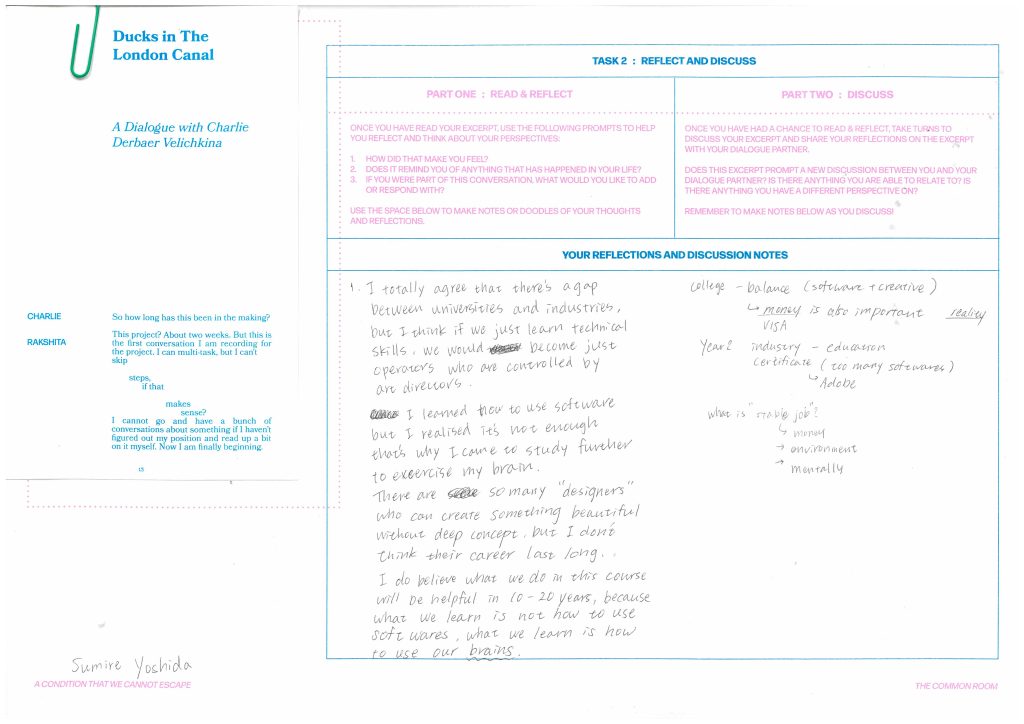 Ducks in The
London Canal
A Dialogue with Charlie
Derbaer Velichkina
CHARLIE
So how long has this been in the making?
RAKSHITA
This project? About two weeks. But this is
the first conversation I am recording for
the project. I can multi-task, but I can't
skip
steps,
if that
makes
sense?
I cannot go and have a bunch of
conversations about something if I haven't
figured out my position and read up a bit
on it myself. Now I am finally beginning.
13
Sumire Yoshida
A CONDITION THAT WE CANNOT ESCAPE
TASK 2 : REFLECT AND DISCUSS
PART ONE : READ & REFLECT
ONCE YOU HAVE READ YOUR EXCERPT, USE THE FOLLOWING PROMPTS TO HELP
YOU REFLECT AND THINK ABOUT YOUR PERSPECTIVES:
1. HOW DID THAT MAKE YOU FEEL?
2. DOES IT REMIND YOU OF ANYTHING THAT HAS HAPPENED IN YOUR LIFE?
3. IF YOU WERE PART OF THIS CONVERSATION, WHAT WOULD YOU LIKE TO ADD
OR RESPOND WITH?
USE THE SPACE BELOW TO MAKE NOTES OR DOODLES OF YOUR THOUGHTS
AND REFLECTIONS.
PART TWO : DISCUSS
ONCE YOU HAVE HAD A CHANCE TO READ & REFLECT, TAKE TURNS TO
DISCUSS YOUR EXCERPT AND SHARE YOUR REFLECTIONS ON THE EXCERPT
WITH YOUR DIALOGUE PARTNER.
DOES THIS EXCERPT PROMPT A NEW DISCUSSION BETWEEN YOU AND YOUR
DIALOGUE PARTNER? IS THERE ANYTHING YOU ARE ABLE TO RELATE TO? IS
THERE ANYTHING YOU HAVE A DIFFERENT PERSPECTIVE ON?
REMEMBER TO MAKE NOTES BELOW AS YOU DISCUSS!
YOUR REFLECTIONS AND DISCUSSION NOTES
1. I totally agree that there's a gap
between universities and industries,
but I think if we just learn technical
skills, we would become just
operators who are controlled by
art directors.
I learned how to use software
but I realised it's not enough
that's why I came to study further
to excercise my brain.
There are so many "designers"
who can create something beautiful
without deep concept. but I don't
think their career last long..
I do believe what we do in this course
will be helpful in 10-20 years, because
what we learn is not how to use
soft wares, what we learn is how
to use our brains.
college - balance (software + creative)
↳ money is also important reality
VISA
Year 2 industry - education
certificate (too many softwares)
↳ Adobe
what is "stable job"?
↳ money
→ environment
→ mentally
THE COMMON ROOM